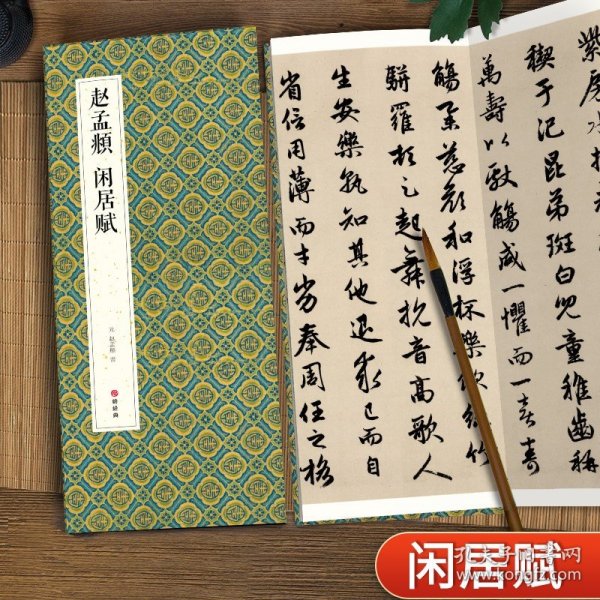 赵孟頫 闲居赋
元 赵孟頫 书
紫房水挂
禊于汜昆弟斑白兒童稚齒稱
萬壽以獻觴咸一懼而一喜壽
觴舉慈顏和浮杯樂飲絲竹
駢羅頓足起舞抗音高歌人
生安樂孰知其他退求己而自
省信用薄而才劣奉周任之格
闲居赋
孔夫子旧书网
www.kongfz.com